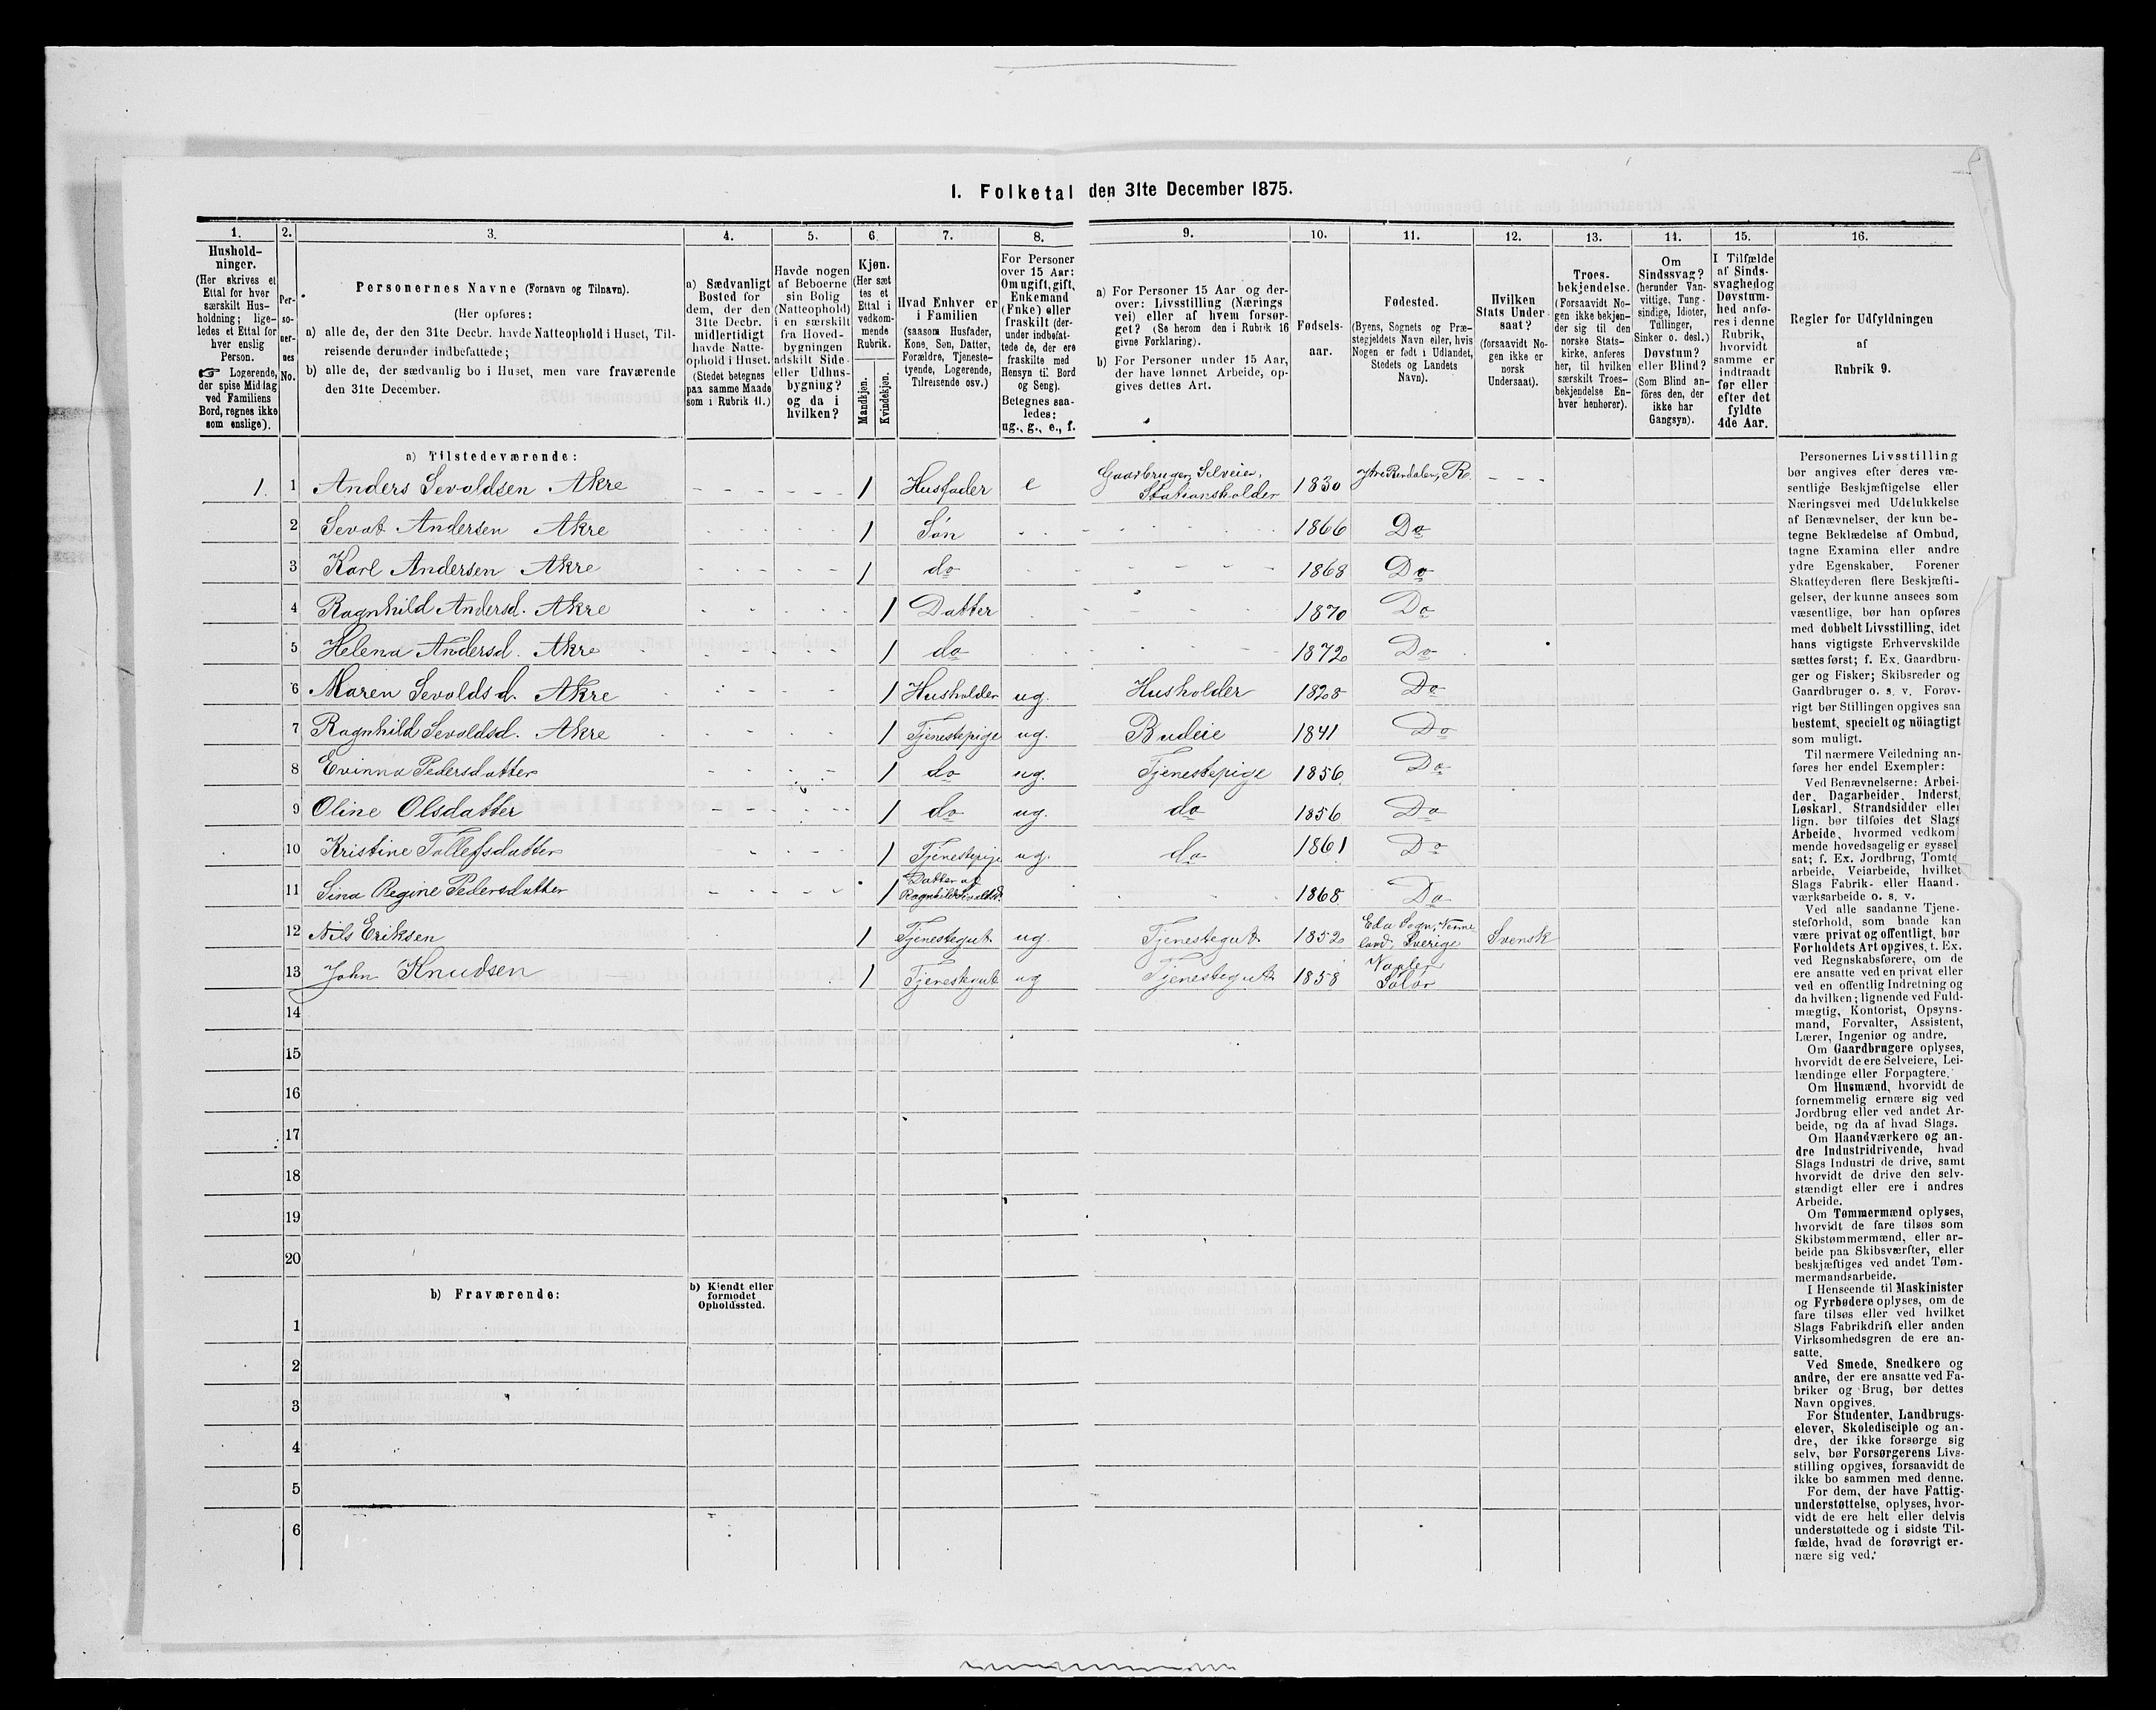 I. Folketal den 31te December 1875.
1. 2. 3. 4. 5. 6. 7. 8. 9. 10. 11. 12. 13. 14. 15. 16.
Hushold-
ninger.
(Her skrives et
Ettal for hver
særskilt Hus-
holdning; lige-
ledes et Ettal for
hver enslig
Person.
☞ Logerende,
der spise Middag
ved Familiens
Bord, regnes ikke
som enslige).
Per-
so-
ner-
nes
No.
Personernes Navne (Fornavn og Tilnavn).
(Her opføres:
a) alle de, der den 31te Decbr. havde Natteophold i Huset, Til-
reisende derunder indbefattede;
b) alle de, der sædvanlig bo i Huset, men vare fraværende
den 31te December.
a) Sædvanligt
Bosted for
dem, der den
31te Decbr.
midlertidigt
havde Natte-
ophold i Huset.
(Stedet betegnes
paa samme Maade
som i Rubrik 11.)
Havde nogen
af Beboerne
sin Bolig
(Natteophold)
i en særskilt
fra Hoved-
bygningen
adskilt Side-
eller Udhus-
bygning?
og da i
hvilken?
Kjøn.
(Her sæt
tes et
Ettal i
vedkom-
mende
Rubrik.
Mandkjøn.
Kvindekjøn.
Hvad Enhver er
i Familien
(saasom Husfader,
Kone, Søn, Datter,
Forældre, Tjeneste-
tyende, Logerende,
Tilreisende osv.)
For Personer
over 15 Aar:
Om ugift, gift,
Enkemand
(Enke) eller
fraskilt (der-
under indbefat-
tede de, der ere
fraskilte med
Hensyn til Bord
og Seng).
Betegnes saa-
ledes:
ug., g., e., f.
a) For Personer 15 Aar og der-
over: Livsstilling (Nærings
vei) eller af hvem forsør-
get? (Se herom den i Rubrik 16
givne Forklaring).
b) For Personer under 15 Aar,
der have lønnet Arbeide, op-
gives dettes Art.
Fødsels-
aar.
Fødested.
(Byens, Sognets og Præ-
stegjeldets Navn eller, hvis
Nogen er født i Udlandet,
Stedets og Landets
Navn).
Hvilken
Stats Under
saat?
(forsaavidt No-
gen ikke er
norsk
Undersaat).
Troes-
bekjendelse.
(Forsaavidt No-
gen ikke bekjen-
der sig til den
norske Stats-
kirke, anføres
her, til hvilken
særskilt Troes-
bekjendelse En-
hver henhører).
Om
Sindssvag?
(herunder Van-
vittige, Tung-
sindige, Idioter,
Tullinger,
Sinker o. desl.)
Døvstum?
eller Blind?
(Som Blind an-
föres den, der
ikke har
Gangsyn).
I Tilfælde
af Sinds-
svaghed og
Døvstum-
hed anfø-
res i denne
Rubrik,
hvorvidt
samme er
indtraadt
før eller
efter det
fyldte
4de Aar.
Regler for Udfyldningen
af
Rubrik 9.
a) Tilstedeværende:
1 1 Anders Sevoldsen Akre 1 Husfader e Gaardbruger, Selveier, Stationsholder 1830 Ytre Rendalen, R.
2 Sevat Andersen Akre 1 Søn 1866 Do
3 Karl Andersen Akre 1 do 1868 Do
4 Ragnhild Andersd. Akre 1 Datter 1870 Do
5 Helena Andersd. Akre 1 do 1872 Do
6 Maren Sevoldsd. Akre 1 Husholder ug. Husholder 1828 Do
7 Ragnhild Sevoldsd. Akre 1 Tjenestepige ug. Budeie 1841 Do
8 Evinna Pedersdatter 1 do ug. Tjenestepige 1856 Do
9 Oline Olsdatter 1 do ug. do 1856 Do
10 Kristine Tollefsdatter 1 Tjenestepige ug. do 1861 Do
11 Sina Regine Pedersdatter 1 Datter af Ragnhild Sevoldsd. 1868 Do
12 Nils Eriksen 1 Tjenestegut ug. Tjenestegut 1852 Eda Sogn, Verme land, Sverige Svensk
13 John Knudsen 1 Tjenestegut ug Tjenestegut 1858 Vaaler Solør
14
15
16
17
18
19
20
b) Fraværende:
b) Kjendt eller
formodet
Opholdssted.
1
2
3
4
5
6
Personernes Livsstilling
bør angives efter deres væ-
sentlige Beskjæftigelse eller
Næringsvei med Udelukkelse
af Benævnelser, der kun be-
tegne Beklædelse af Ombud,
tagne Examina eller andre
ydre Egenskaber. Forener
Skatteyderen flere Beskjæfti-
gelser, der kunne ansees som
væsentlige, bør han opføres
med dobbelt Livsstilling, idet
hans vigtigste Erhvervskilde
sættes først; f. Ex. Gaardbru-
ger og Fisker; Skibsreder og
Gaardbruger o. s. v. Forøv-
rigt bør Stillingen opgives saa
bestemt, specielt og nöiagtigt
som muligt.
Til nærmere Veiledning an-
føres her endel Exempler:
Ved Benævnelserne: Arbei-
der, Dagarbeider, Inderst,
Løskarl, Strandsidder eller
lign. bør tilføies det Slags
Arbeide, hvormed vedkom
mende hovedsagelig er syssel
sat; f. Ex. Jordbrug, Tomte
arbeide, Veiarbeide, hvilket
Slags Fabrik- eller Haand-
værksarbeide o. s. v.
Ved alle saadanne Tjene-
steforhold, som baade kan
være privat og offentligt, bør
Forholdets Art opgives, t. Ex.
ved Regnskabsførere, om de
ere ansatte ved en privat eller
ved en offentlig Indretning og
da hvilken; lignende ved Fuld-
mægtig, Kontorist, Opsyns-
mand, Forvalter, Assistent,
Lærer, Ingeniør og andre.
Om Gaardbrugere oplyses,
hvorvidt de ere Selveiere, Lei-
lændinge eller Forpagtere.
Om Husmænd, hvorvidt de
fornemmelig ernære sig ved
Jordbrug eller ved andet Ar-
beide, og da af hvad Slags.
Om Haandværkere og an-
dre Industridrivende, hvad
Slags Industri de drive, samt
hvorvidt de drive den selv-
stændigt eller ere i andres
Arbeide.
Om Tømmermænd oplyses,
hvorvidt de fare tilsøs som
Skibstømmermænd, eller ar-
beide paa Skibsværfter, eller
beskjæftiges ved andet Tøm-
mermandsarbeide.
I Henseende til Maskinister
og Fyrbødere oplyses, om de
fare tilsøs eller ved hvilket
Slags Fabrikdrift eller anden
Virksomhedsgren de ere an-
satte.
Ved Smede, Snedkere og
andre, der ere ansatte ved Fa-
briker og Brug, bør dettes
Navn opgives.
For Studenter, Landbrugs-
elever, Skoledisciple og an-
dre, der ikke forsørge sig
selv, bør Forsørgerens Livs-
stilling opgives, forsaavidt de
ikke bo sammen med denne.
For dem, der have Fattig-
understøttelse, oplyses, hvor-
vidt de ere helt eller delvis
understøttede og i sidste Til-
fælde, hvad de forøvrigt er-
nære sig ved.